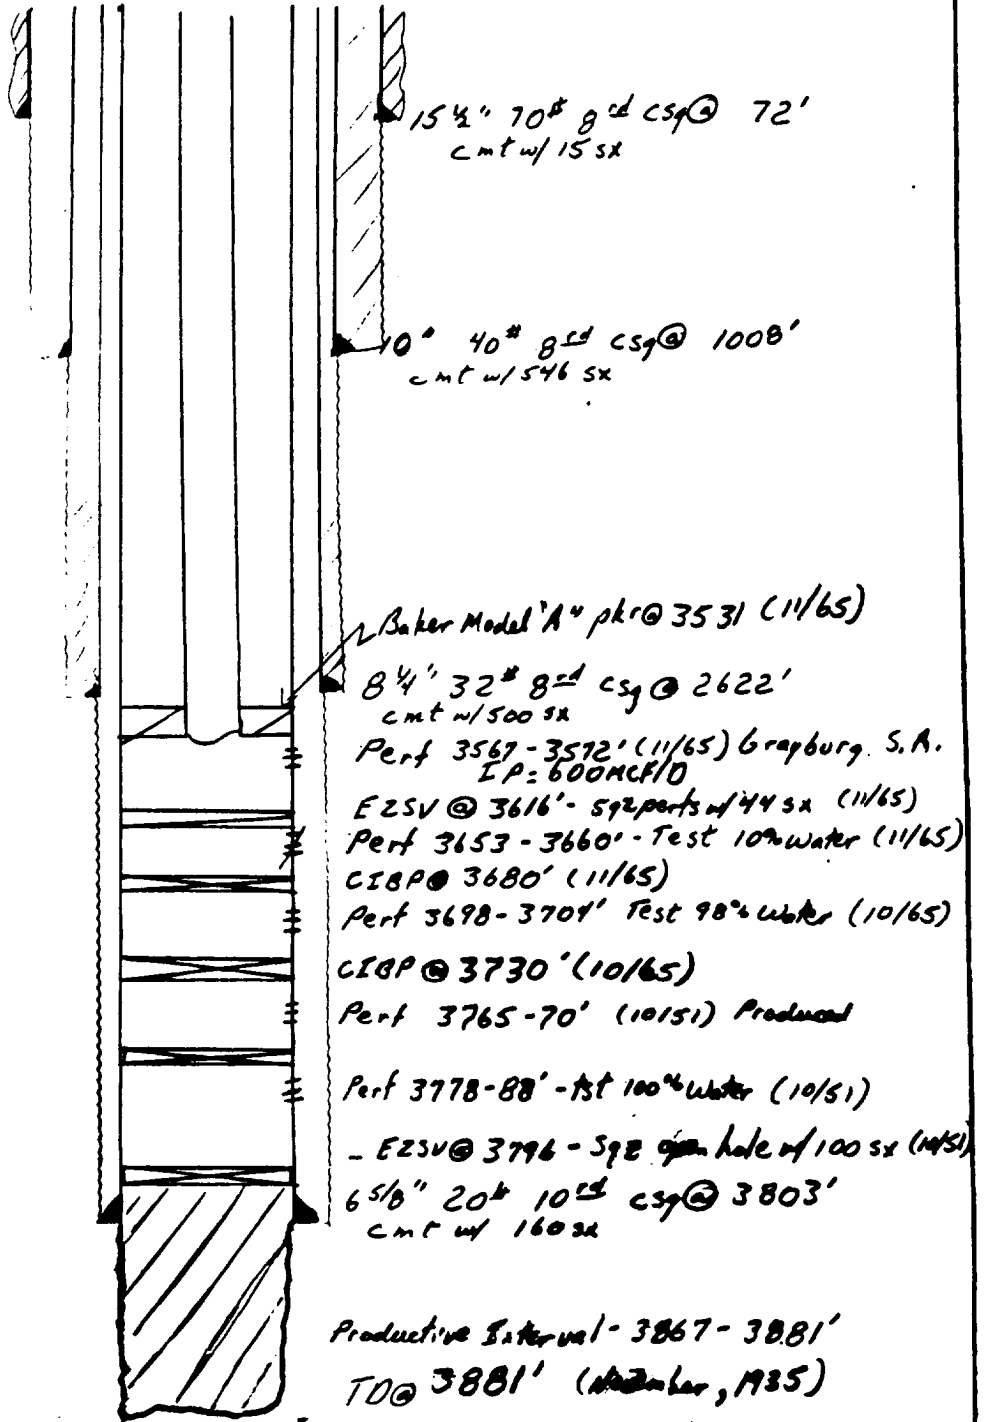 15 ½" 70# 8 rd csg@ 72'
cmt w/ 15 sx
10" 40# 8 rd csg@ 1008'
cmt w/ 546 sx
Baker Model "A" pkr@ 3531 (11/65)
8 ¼" 32# 8 rd csg @ 2622'
cmt w/ 500 sx
Perf 3567-3572' (11/65) Grayburg S.A.
IP= 600MCF/D
EZSV @ 3616' - sqz perfs w/ 44 sx (11/65)
Perf 3653 - 3660' - Test 10% water (11/65)
CIBP@ 3680' (11/65)
Perf 3698-3704' Test 98% water (10/65)
CIBP @ 3730' (10/65)
Perf 3765-70' (10/51) Produced
Perf 3778-88' - tst 100% water (10/51)
- EZSV@ 3796 - Sqz open hole w/ 100 sx (10/51)
6 5/8" 20# 10 rd csg@ 3803'
cmt w/ 160 sx
Productive Interval - 3867 - 3881'
TD@ 3881' (, 1935)